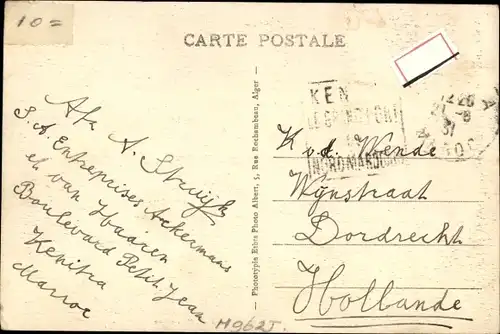 10=
CARTE POSTALE
Afz A. Struijk
S.A. Entreprises Ackermans
et van Haaren
Boulevard Petit Jean
Kenitra
Maroc
— Phototypie Etbts Photo Albert, 5, Rue Rochambeau, Alger —
KEN
LE GRAND PORT
NORD MAROCAIN
K. v.d. Wende
Wijnstraat
Dordrecht
Hollande
H9625